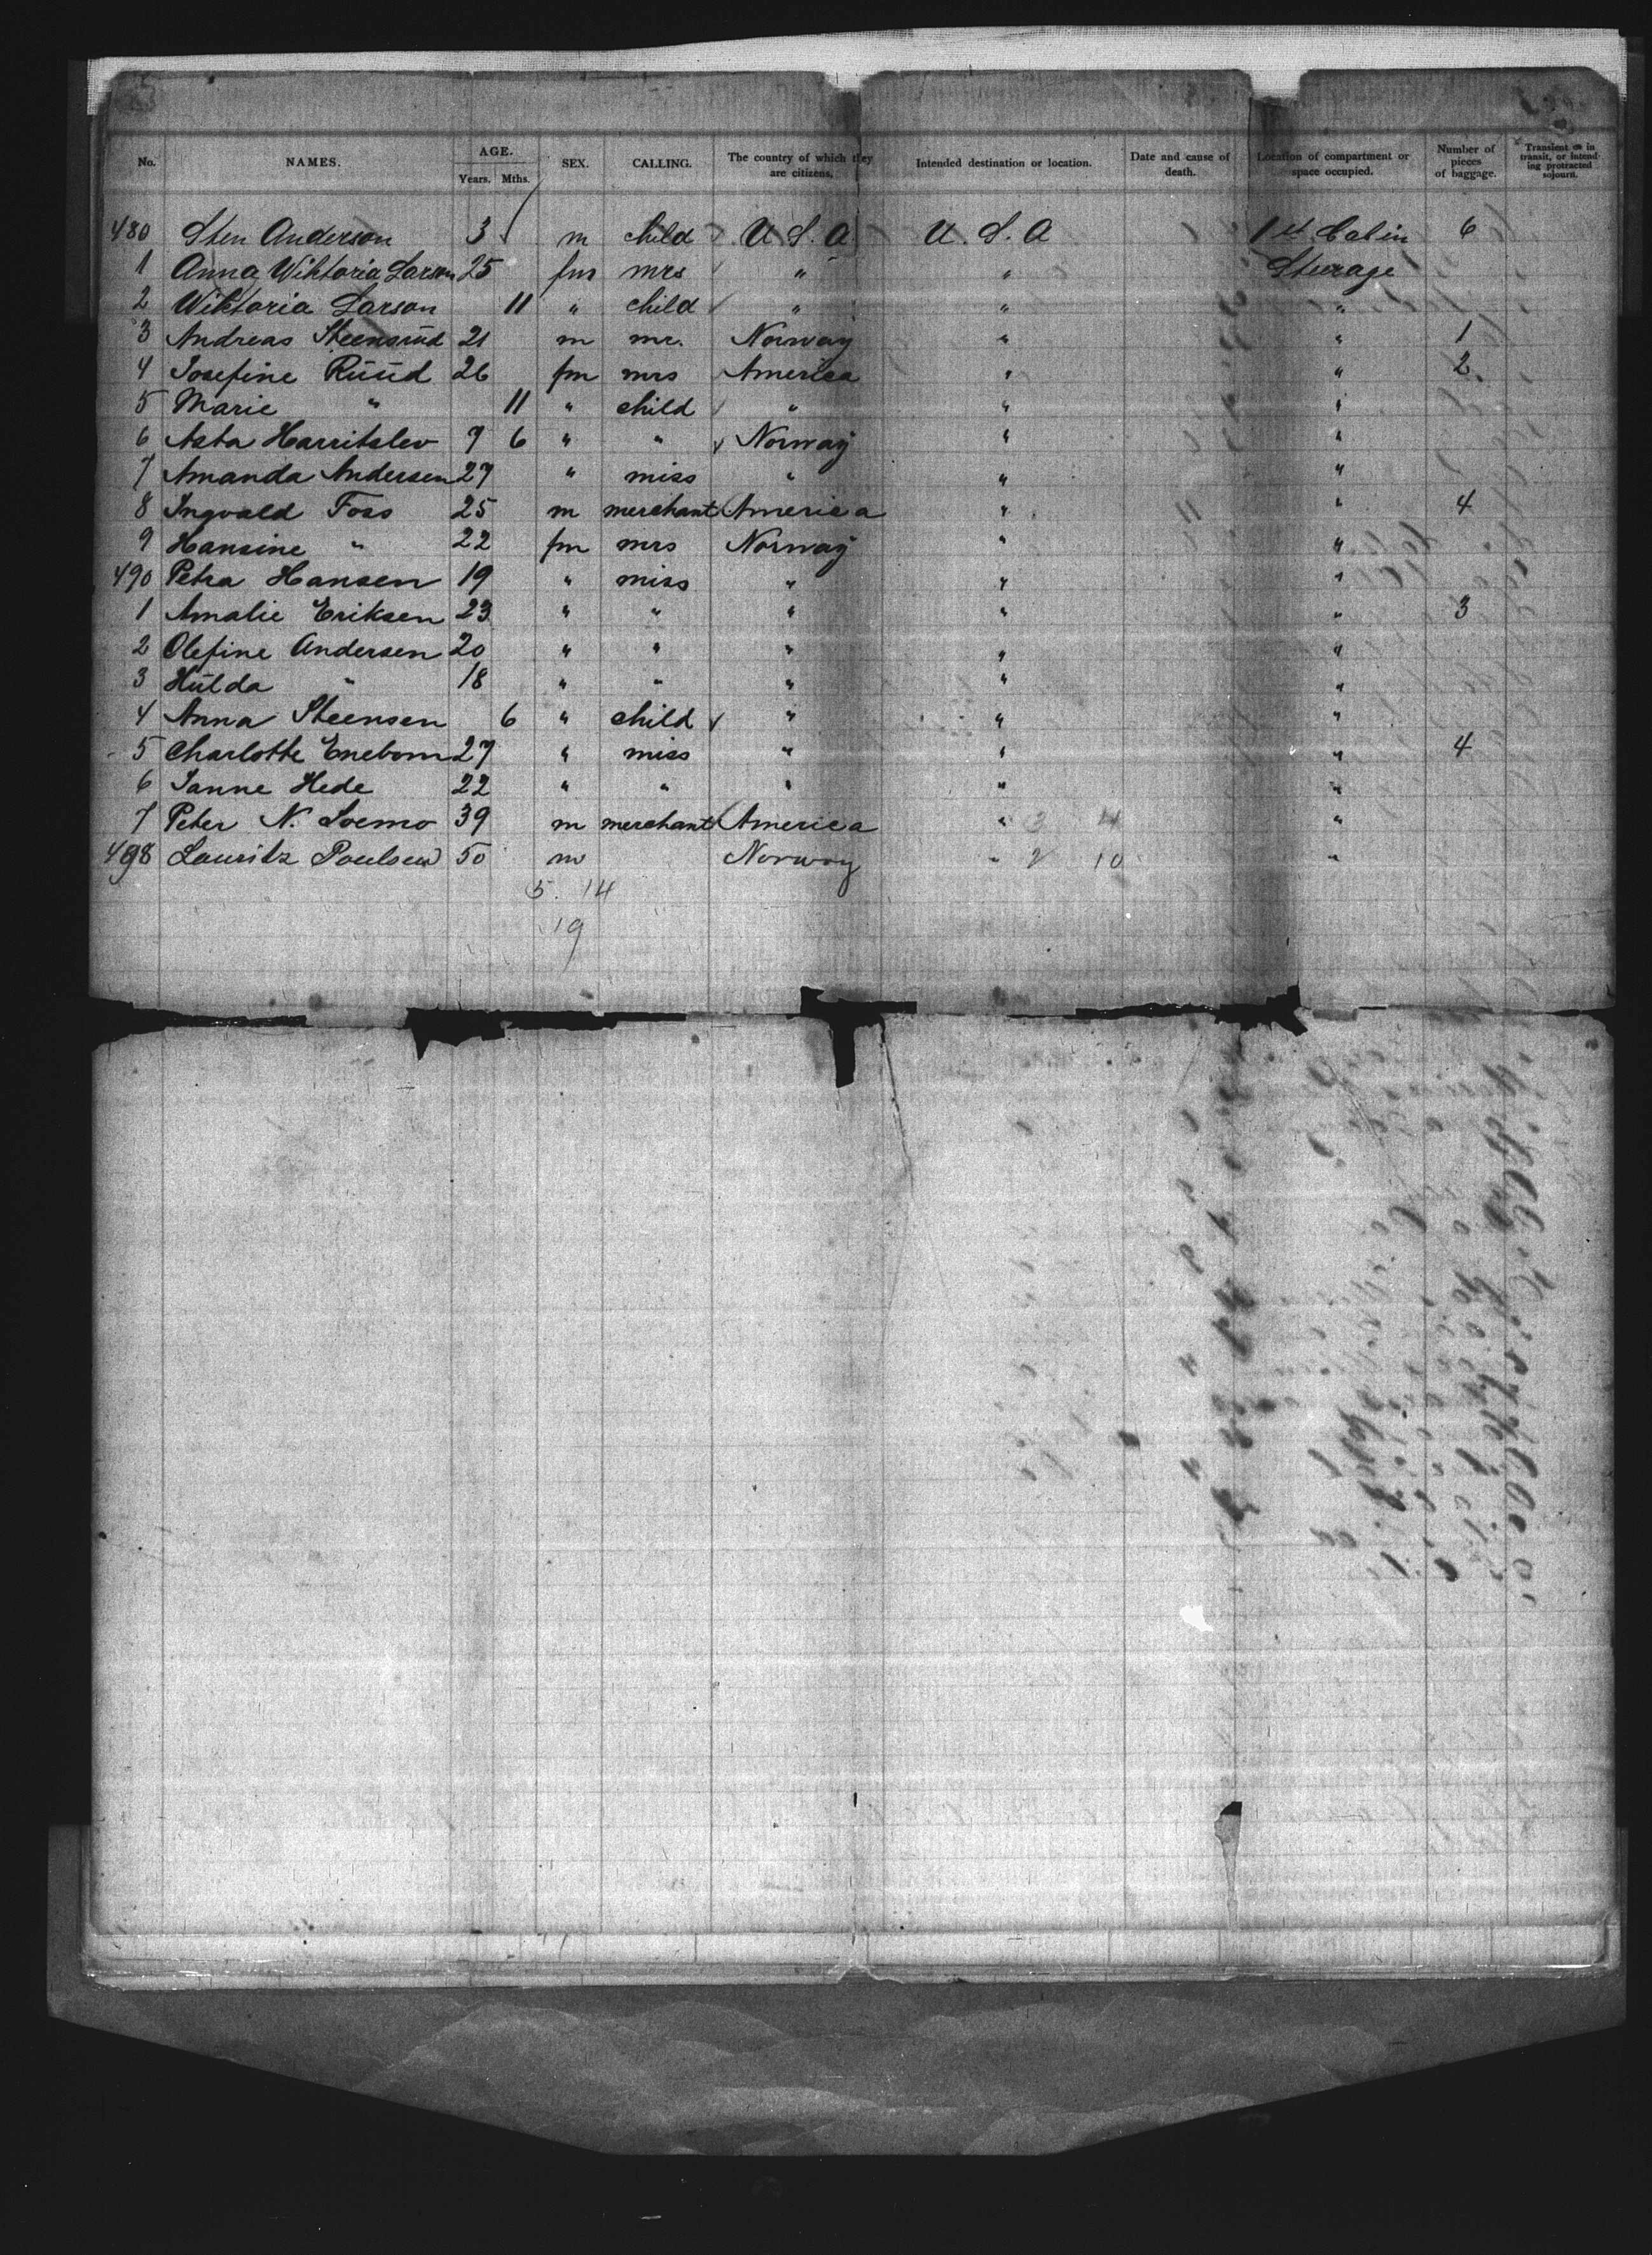 No. NAMES. AGE. Years. Mths. SEX. CALLING. The country of which they are citizens. Intended destination or location. Date and cause of death. Location of compartment or space occupied. Number of pieces of baggage. Transient or in transit, or intending protracted sojourn.
480 Sten Anderson 3 m child U.S.A U.S.A 1st Cabin 6
1 Anna Wiktoria Larson 25 fm mrs " " Sturage
2 Wiktoria Larson 11 " child " " "
3 Andreas Steensrud 21 m mr. Norway " " 1
4 Josefine Ruud 26 fm mrs America " " 2
5 Marie " 11 " child " " "
6 Asta Harritslev 9 6 " " Norway " "
7 Amanda Andersen 27 " miss " " "
8 Ingvald Foss 25 m merchant America " " 4
9 Hansine " 22 fm mrs Norway " "
490 Petra Hansen 19 " miss " " "
1 Amalie Eriksen 23 " " " " " 3
2 Olefine Andersen 20 " " " " "
3 Hulda " 18 " " " " "
4 Anna Steensen 6 " child " " "
5 Charlotte Enebom 27 " miss " " " 4
6 Janne Hede 22 " " " " "
7 Peter N. Loemo 39 m merchant America " 3 4 "
498 Lauritz Poulsen 50 m Norway " 2 10 "
5. 14
19